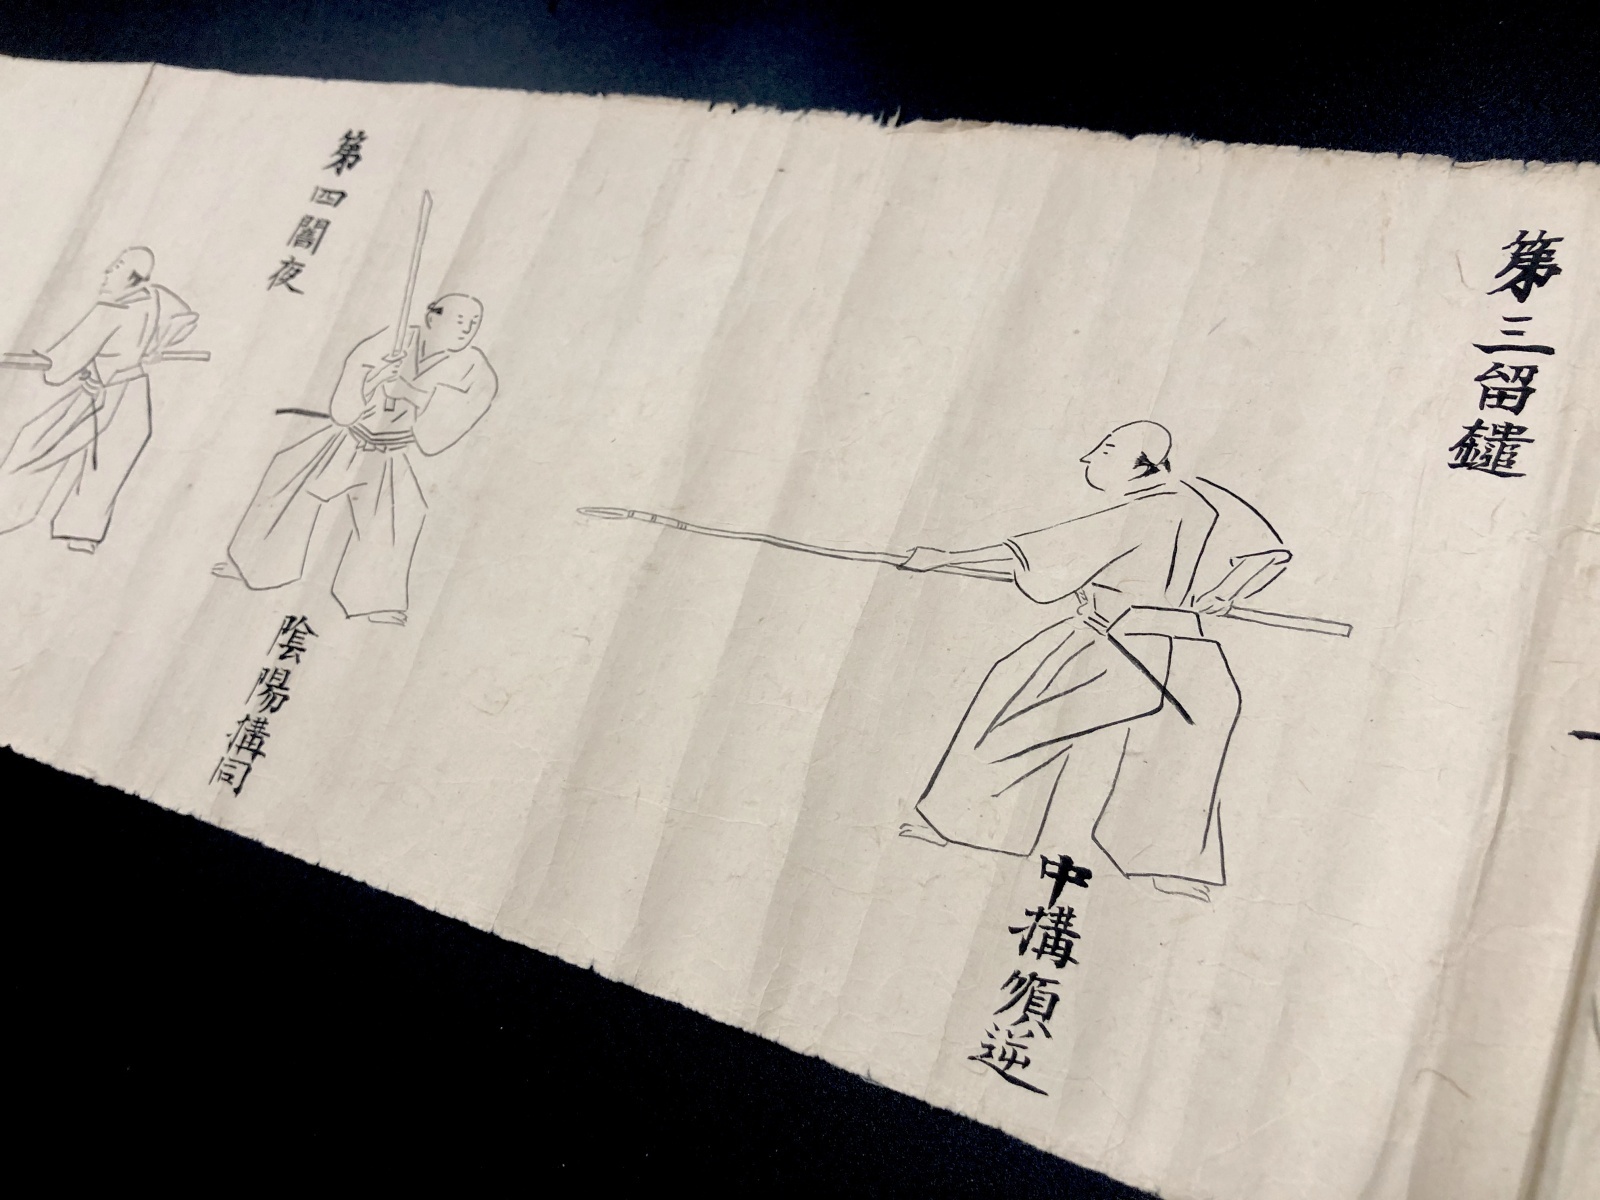 第三留鑓
中搆順逆
第四闇夜
陰陽搆同